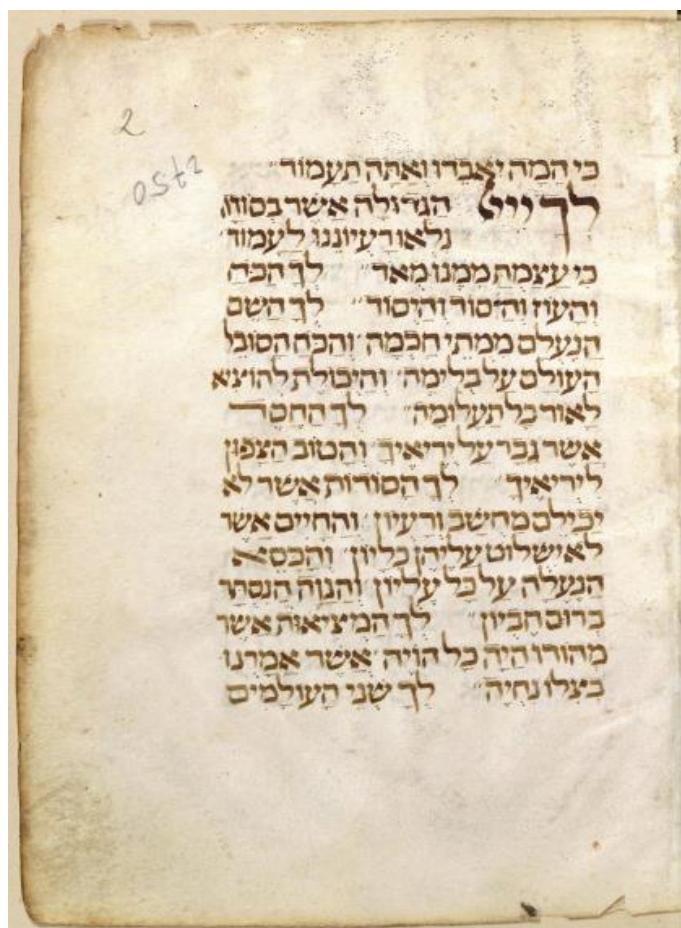 2
כי המה יאבדו ואתה תעמוד
לך ייי הגדולה אשר בסודה
נלאו רעיוננו לעמוד
כי עצמת ממנו מאד לך הכח
והעוז והיסוד והיסוד לך השם
הנעלם ממתי חכמה והכח הסובל
העולם על בלימה והיכולת להוציא
לאור כל תעלומה לך החסד
אשר גבר על יריאיך והטוב הצפון
ליריאיך לך הסודות אשר לא
יכילם מחשב ורעיון והחיים אשר
לא ישלוט עליהן כליון והכסא
הנעלה על כל עליון והנוה הנסתר
ברום חביון לך המציאות אשר
מהורו היה כל הויה אשר אמרנו
בצלו נחיה לך שני העולמים